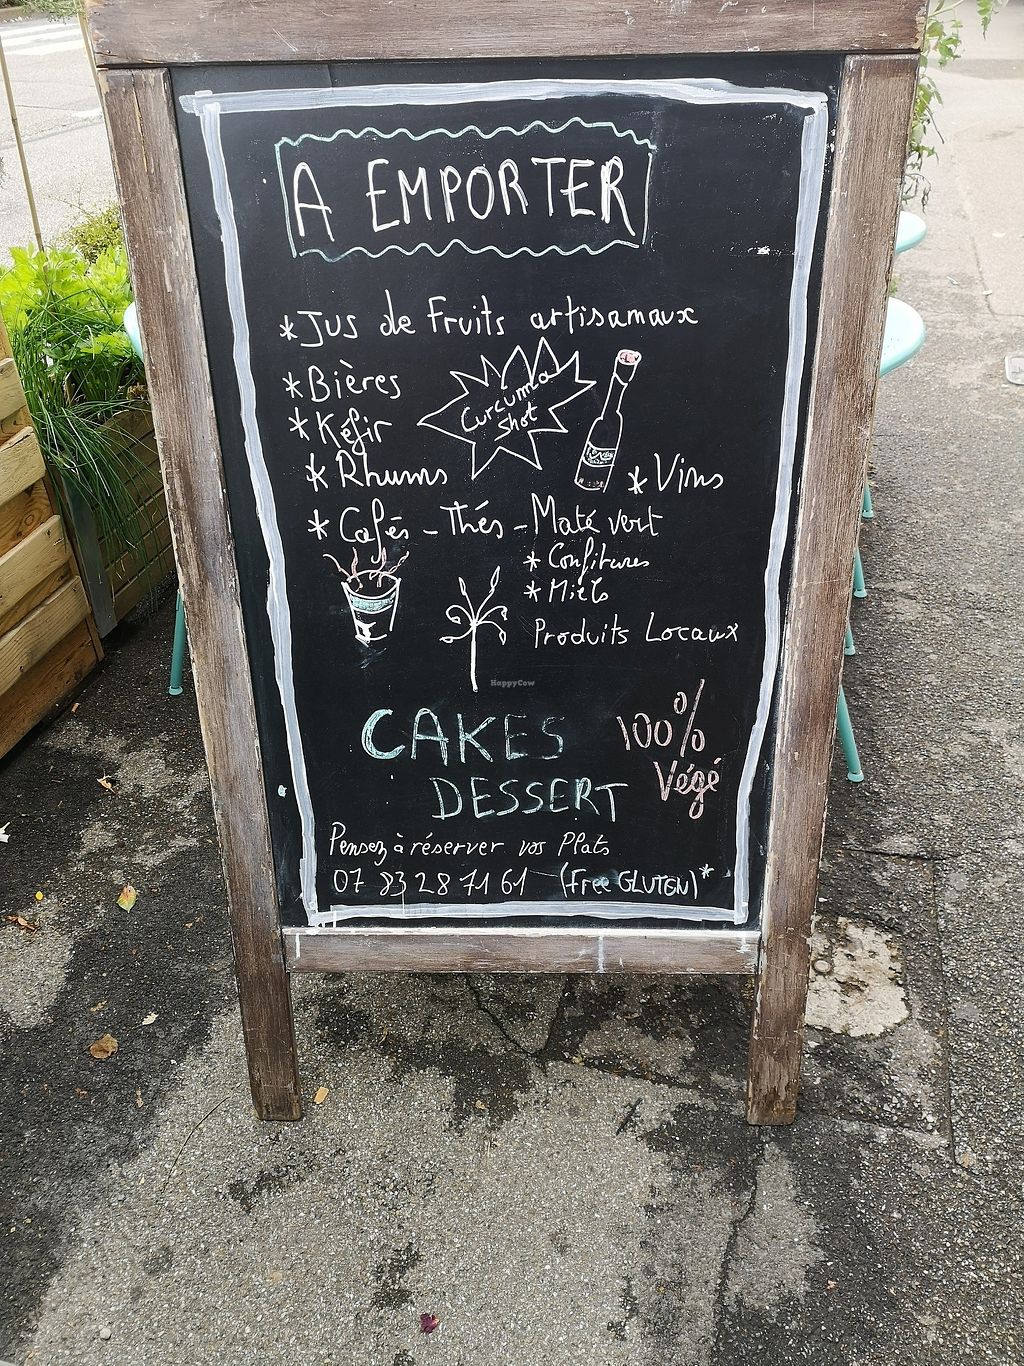 A EMPORTER
*Jus de Fruits artisanaux
*Bières
Curcuma
Shot
*Kéfir
*Rhums
*Vins
*Cafés - Thés - Maté vert
*Confitures
*Miels
Produits Locaux
HappyCow
CAKES
DESSERT
100%
Végé
Pensez à réserver vos Plats
07 83 28 71 61 (Free GLUTEN)*